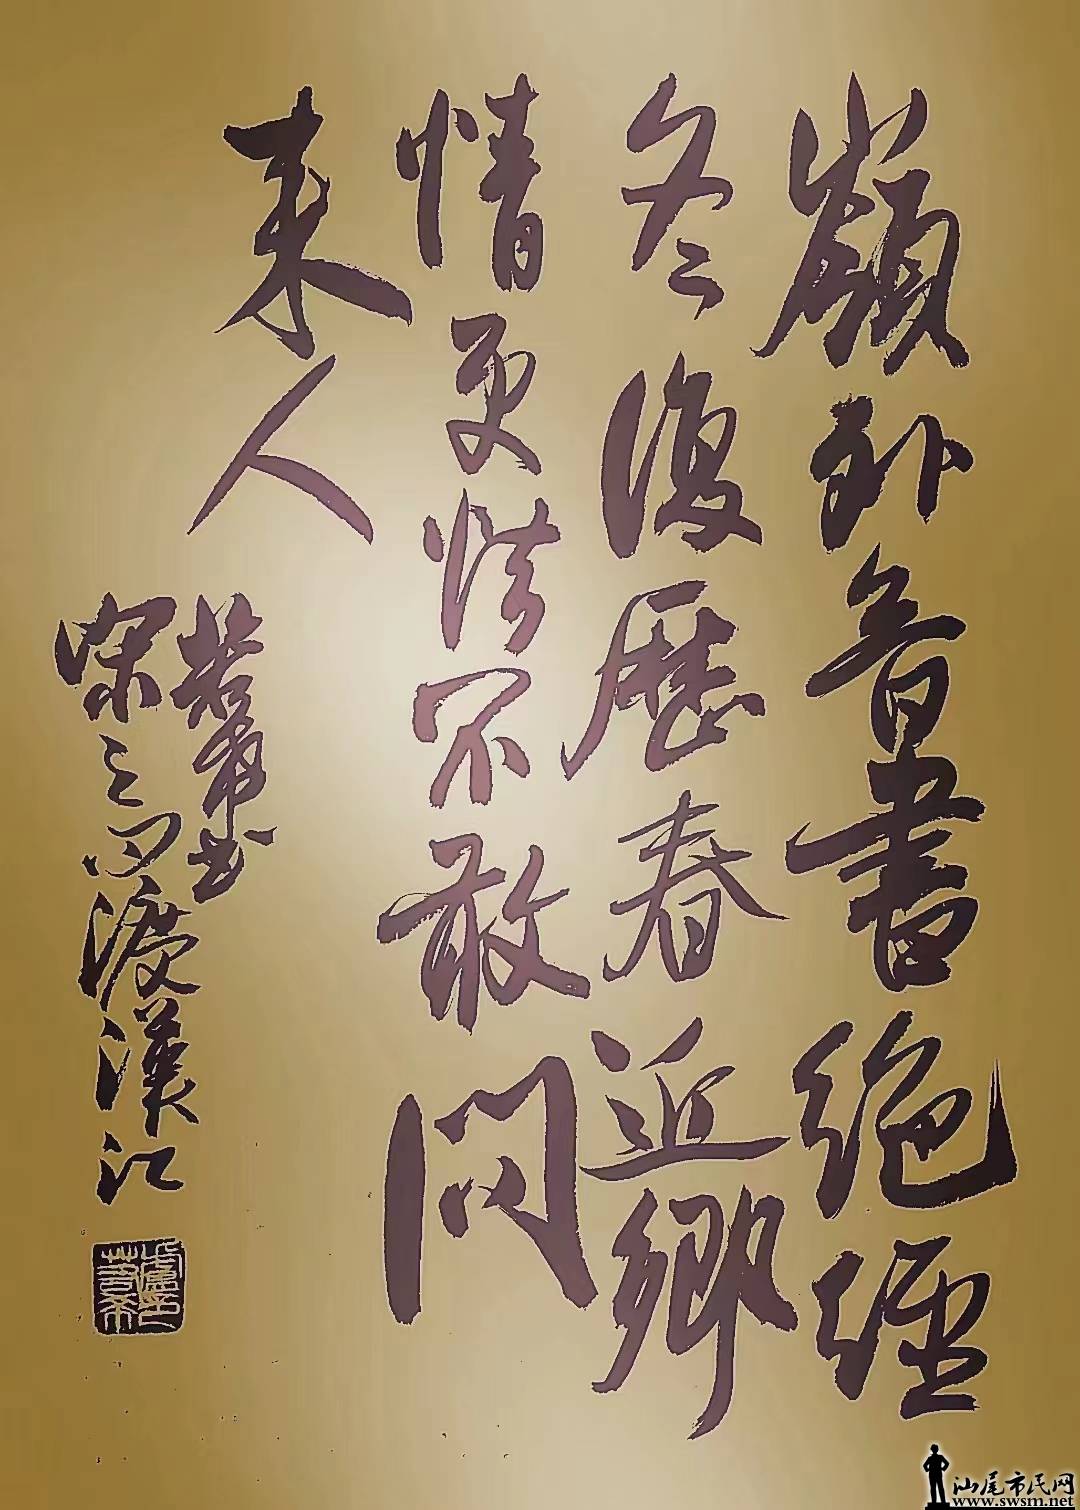 嶺外音書絕經
冬復歷春近鄉
情更怯不敢問
來人
宋之問渡漢江
汕尾市民网
www.swsm.net